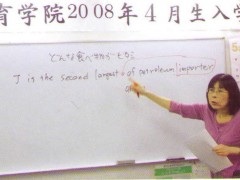 育学院2008年4月生入学
どんな食べ物が
J is the second largest of petroleum importer